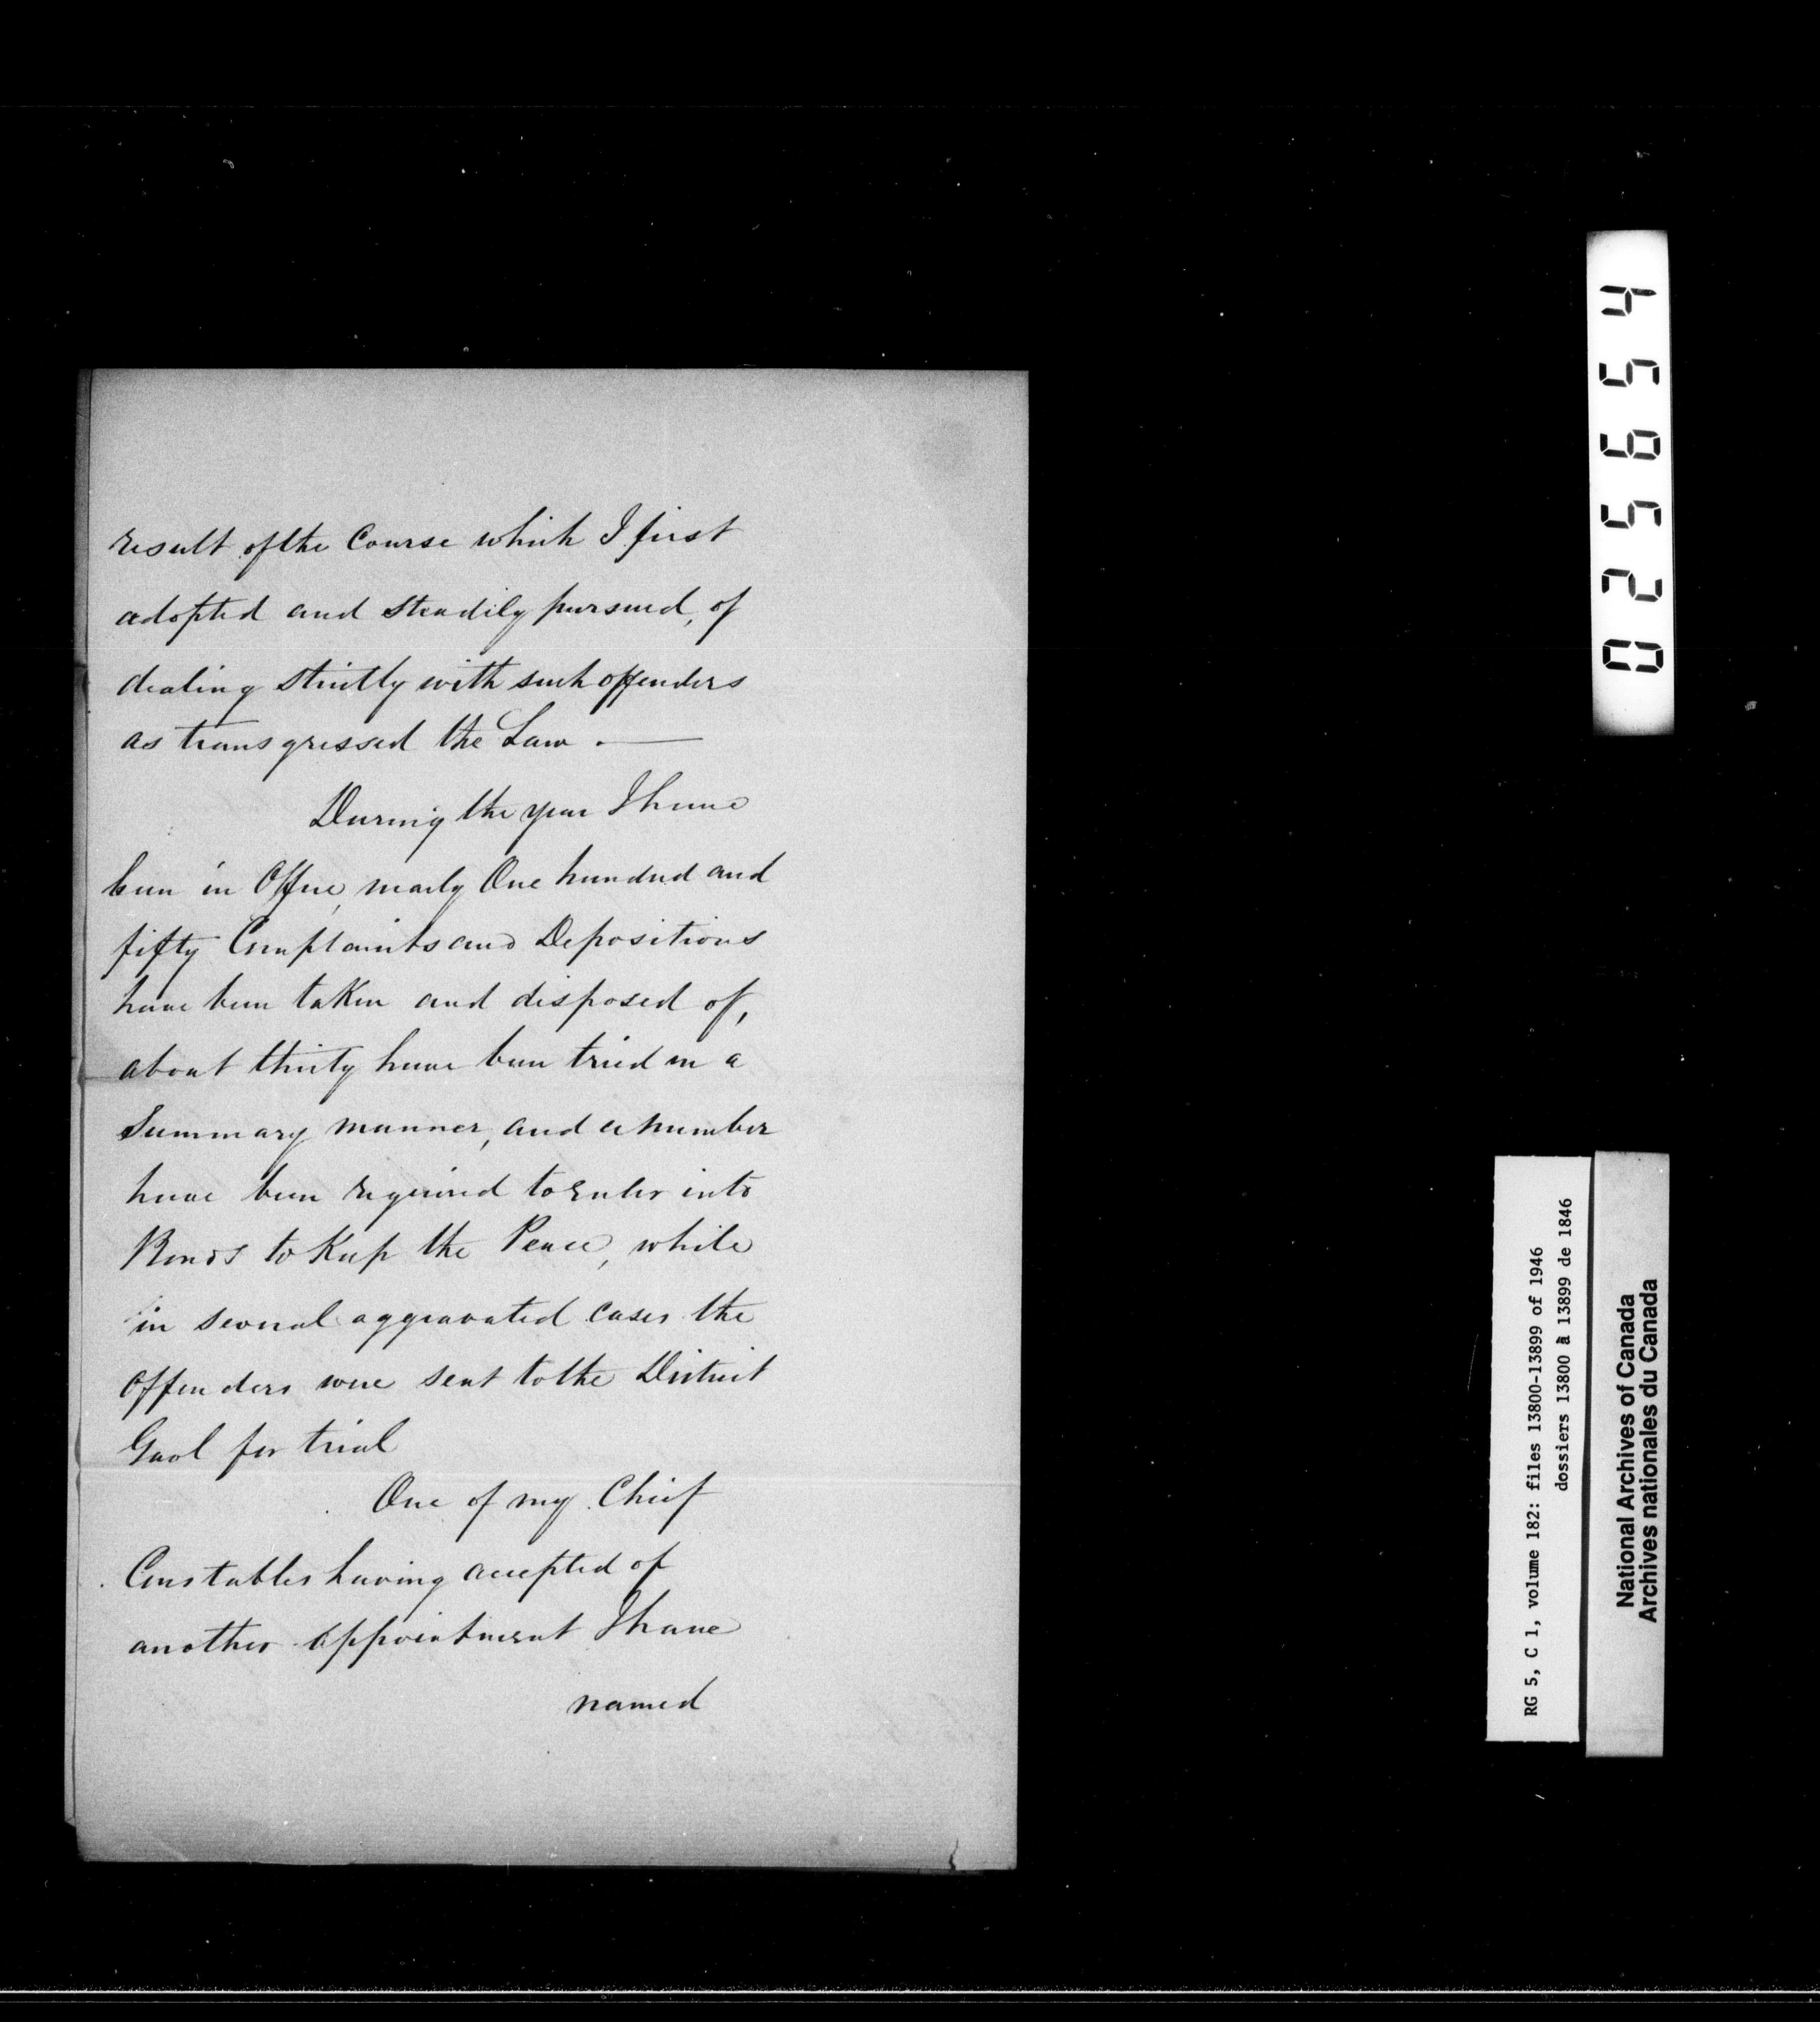 result of the Course which I first
adopted and steadily pursued, of
dealing strictly with such offenders
as transgressed the Law . —
During the year I have
been in Office, nearly One hundred and
fifty Complaints and Depositions
have been taken and disposed of,
about thirty have been tried in a
Summary manner, and a number
have been required to enter into
Bonds to Keep the Peace, while
in several aggravated cases the
Offenders were sent to the District
Gaol for trial
One of my Chief
Constables having accepted of
another appointment I have
named
025654
RG 5, C 1, volume 182: files 13800-13899 of 1946
dossiers 13800 à 13899 de 1846
National Archives of Canada
Archives nationales du Canada